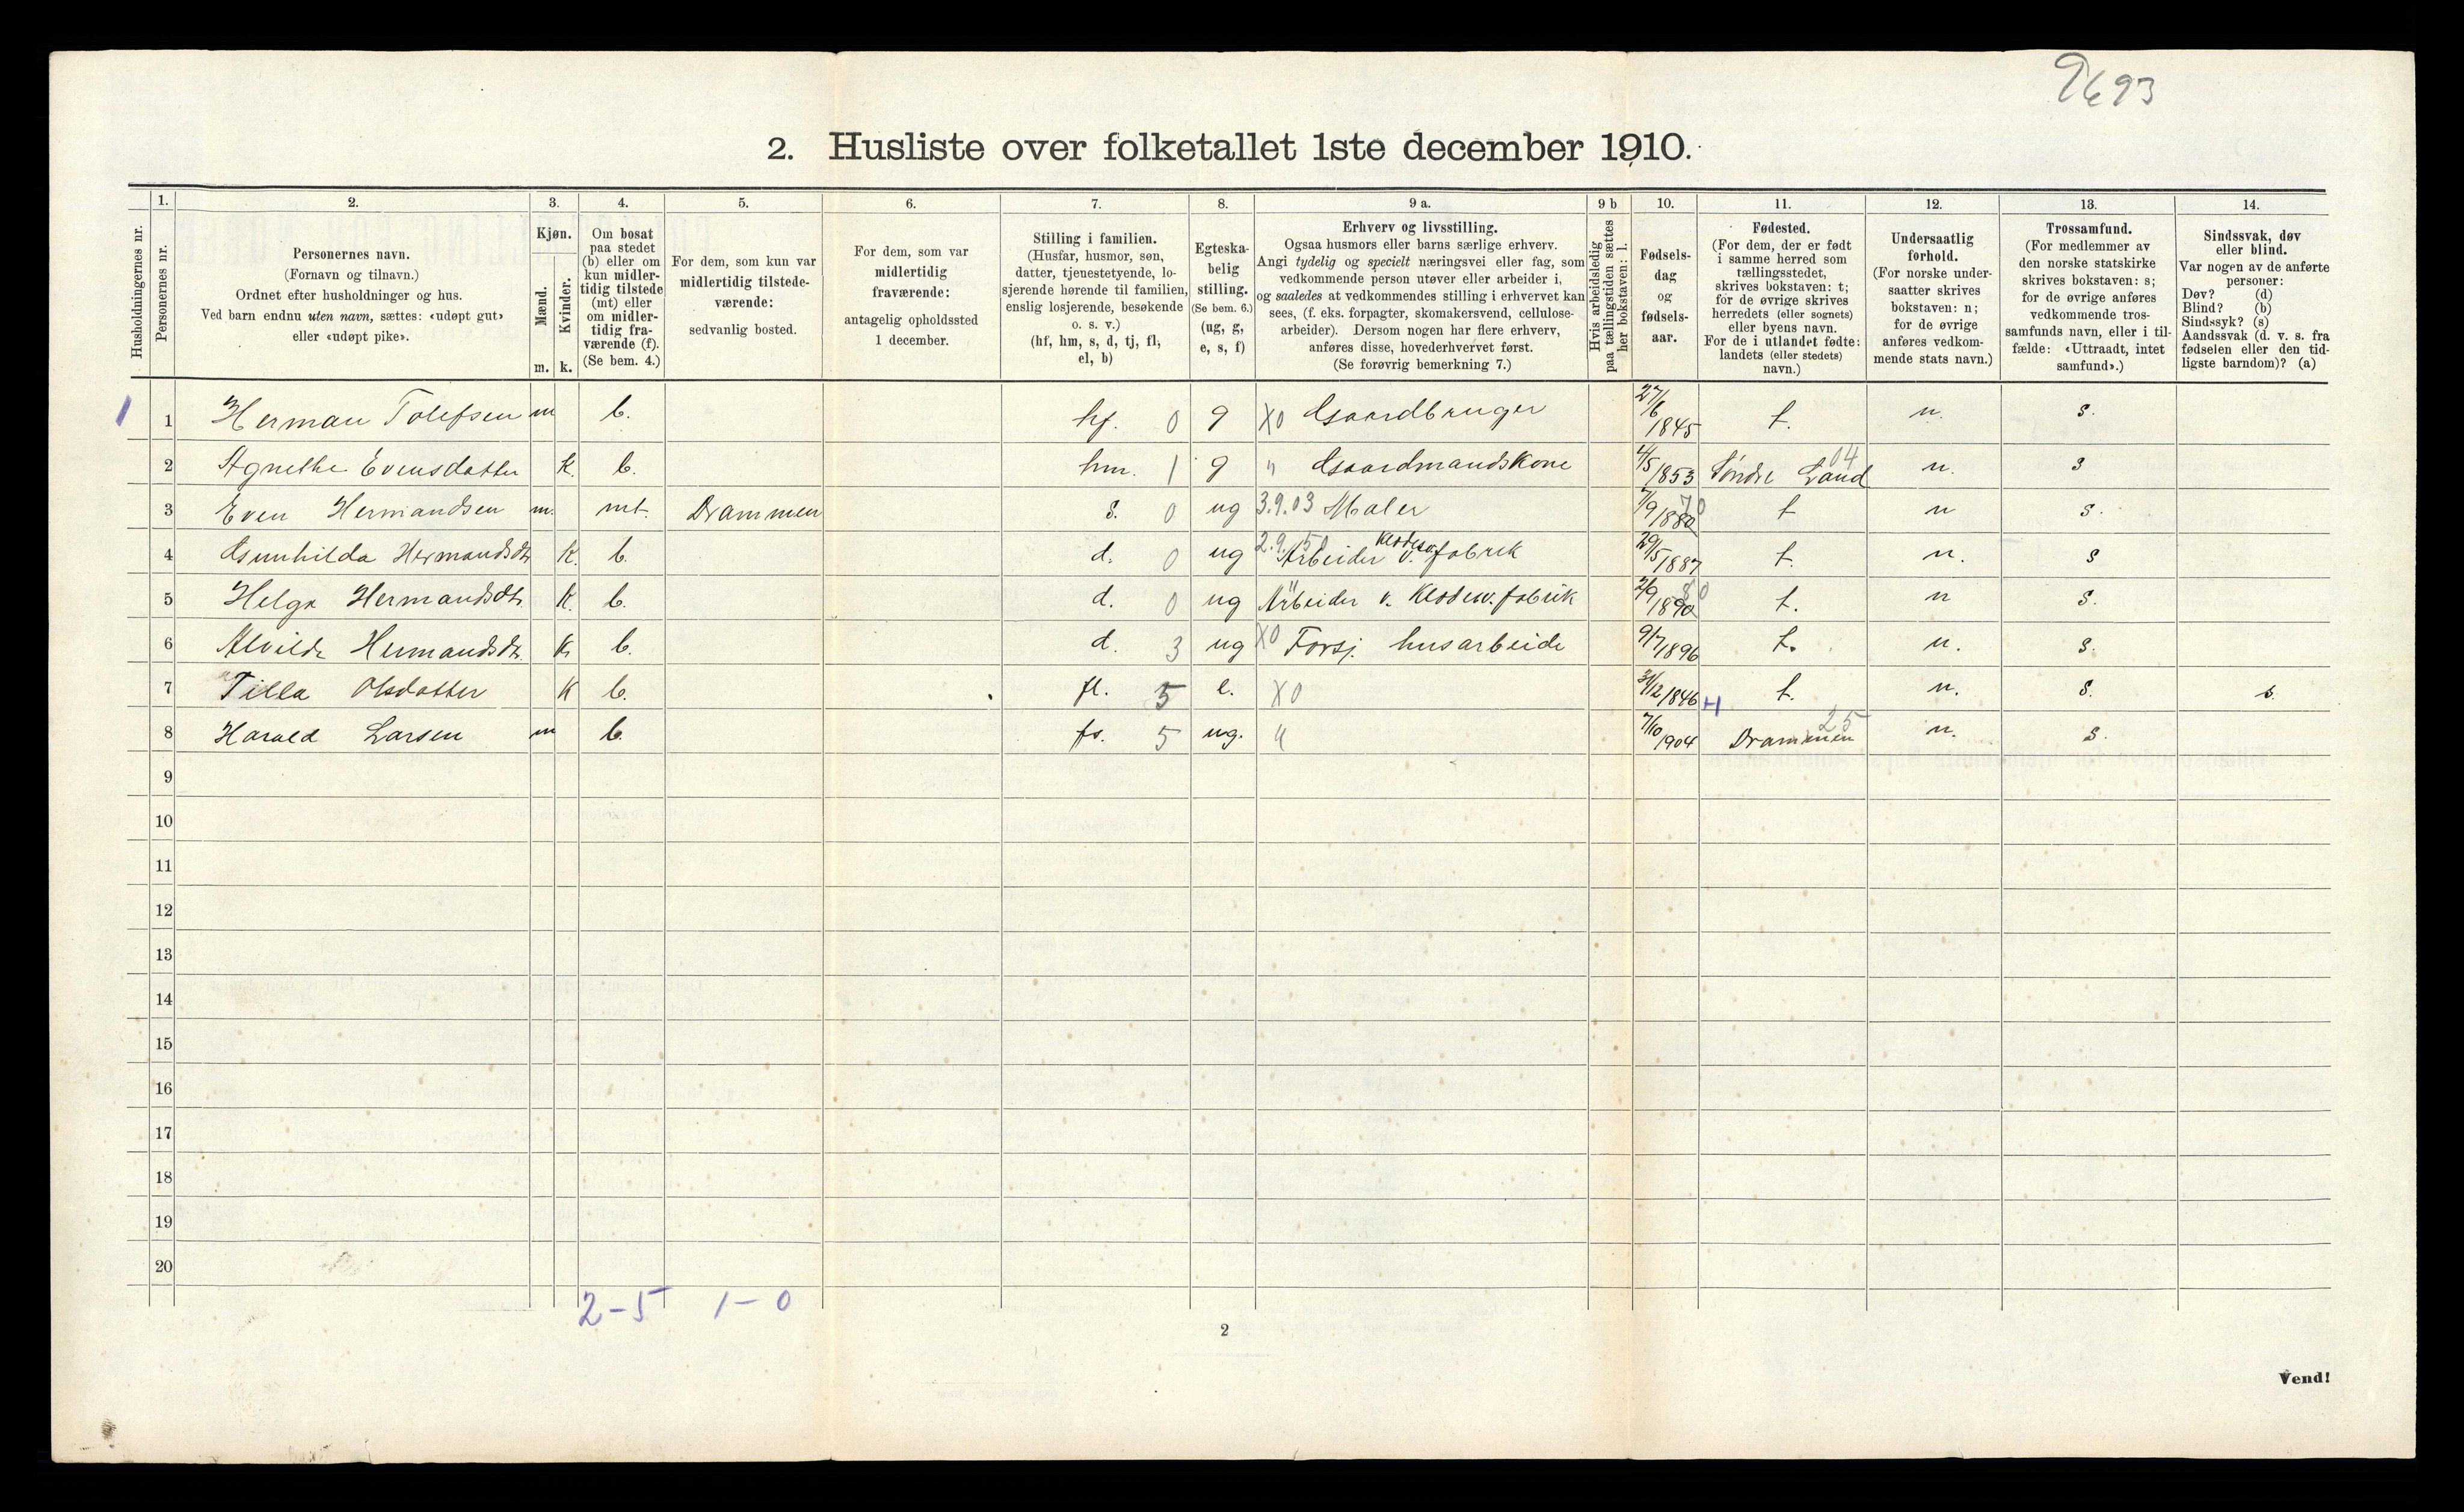 9693
2. Husliste over folketallet 1ste december 1910.
Husholdningernes nr.
1.
Personernes nr.
2.
Personernes navn.
(Fornavn og tilnavn.)
Ordnet efter husholdninger og hus.
Ved barn endnu uten navn, sættes: «udøpt gut»
eller «udøpt pike».
3.
Kjøn.
Mænd.
Kvinder.
m. k.
4.
Om bosat
paa stedet
(b) eller om
kun midler-
tidig tilstede
(mt) eller
om midler-
tidig fra-
værende (f).
(Se bem. 4.)
5.
For dem, som kun var
midlertidig tilstede-
værende:
sedvanlig bosted.
6.
For dem, som var
midlertidig
fraværende:
antagelig opholdssted
1 december.
7.
Stilling i familien.
(Husfar, husmor, søn,
datter, tjenestetyende, lo-
sjerende hørende til familien,
enslig losjerende, besøkende
o. s. v.)
(hf, hm, s, d, tj, fl,
el, b)
8.
Egteska-
belig
stilling.
(Se bem. 6.)
(ug, g,
e, s, f)
9 a.
Erhverv og livsstilling.
Ogsaa husmors eller barns særlige erhverv.
Angi tydelig og specielt næringsvei eller fag, som
vedkommende person utøver eller arbeider i,
og saaledes at vedkommendes stilling i erhvervet kan
sees, (f. eks. forpagter, skomakersvend, cellulose-
arbeider). Dersom nogen har flere erhverv,
anføres disse, hovederhvervet først.
(Se forøvrig bemerkning 7.)
9 b
Hvis arbeidsledig
paa tællingstiden sættes
her bokstaven: l.
10.
Fødsels-
dag
og
fødsels-
aar.
11.
Fødested.
(For dem, der er født
i samme herred som
tællingsstedet,
skrives bokstaven: t;
for de øvrige skrives
herredets (eller sognets)
eller byens navn.
For de i utlandet fødte:
landets (eller stedets)
navn.)
12.
Undersaatlig
forhold.
(For norske under-
saatter skrives
bokstaven: n;
for de øvrige
anføres vedkom-
mende stats navn.)
13.
Trossamfund.
(For medlemmer av
den norske statskirke
skrives bokstaven: s;
for de øvrige anføres
vedkommende tros-
samfunds navn, eller i til-
fælde: «Uttraadt, intet
samfund».)
14.
Sindssvak, døv
eller blind.
Var nogen av de anførte
personer:
Døv? (d)
Blind? (b)
Sindssyk? (s)
Aandssvak (d. v. s. fra
fødselen eller den tid-
ligste barndom)? (a)
1 1 Herman Tolefsen m b. hf. 0 g X0 Gaardbruger 27/6 1845 t. n. s.
2 Agnethe Evensdatter K. b. hm. 1 g " GaardmandsKone 4/5 1853 Søndre Land 04 n. s
3 Even Hermandsen m. mt. Drammen s. 0 ug 3.9.03 Maler 7/9 1880 70 t n s.
4 Gunhilda Hermandsdtr K. b. d. 0 ug 2.9.50 Arbeider v. Klædesv. fabrik 29/5 1887 t. n. s
5 Helga Hermandsdtr. K. b. d. 0 ug " Arbeider v. Klædesv. fabrik 2/9 1890 80 t. n s.
6 Alvilde Hermandsdtr. K b. d. 3 ug X0 Forsj. husarbeide 9/7 1896 t. n. s.
7 Tilla Olsdatter K b. fl. 5 e. X0 31/12 1846 H t. n. s. s.
8 Harald Larsen m b. fs. 5 ug. " 7/10 1904 Drammen 25 n. s.
9
10
11
12
13
14
15
16
17
18
19
20
2-5 1-0
2
Vend!